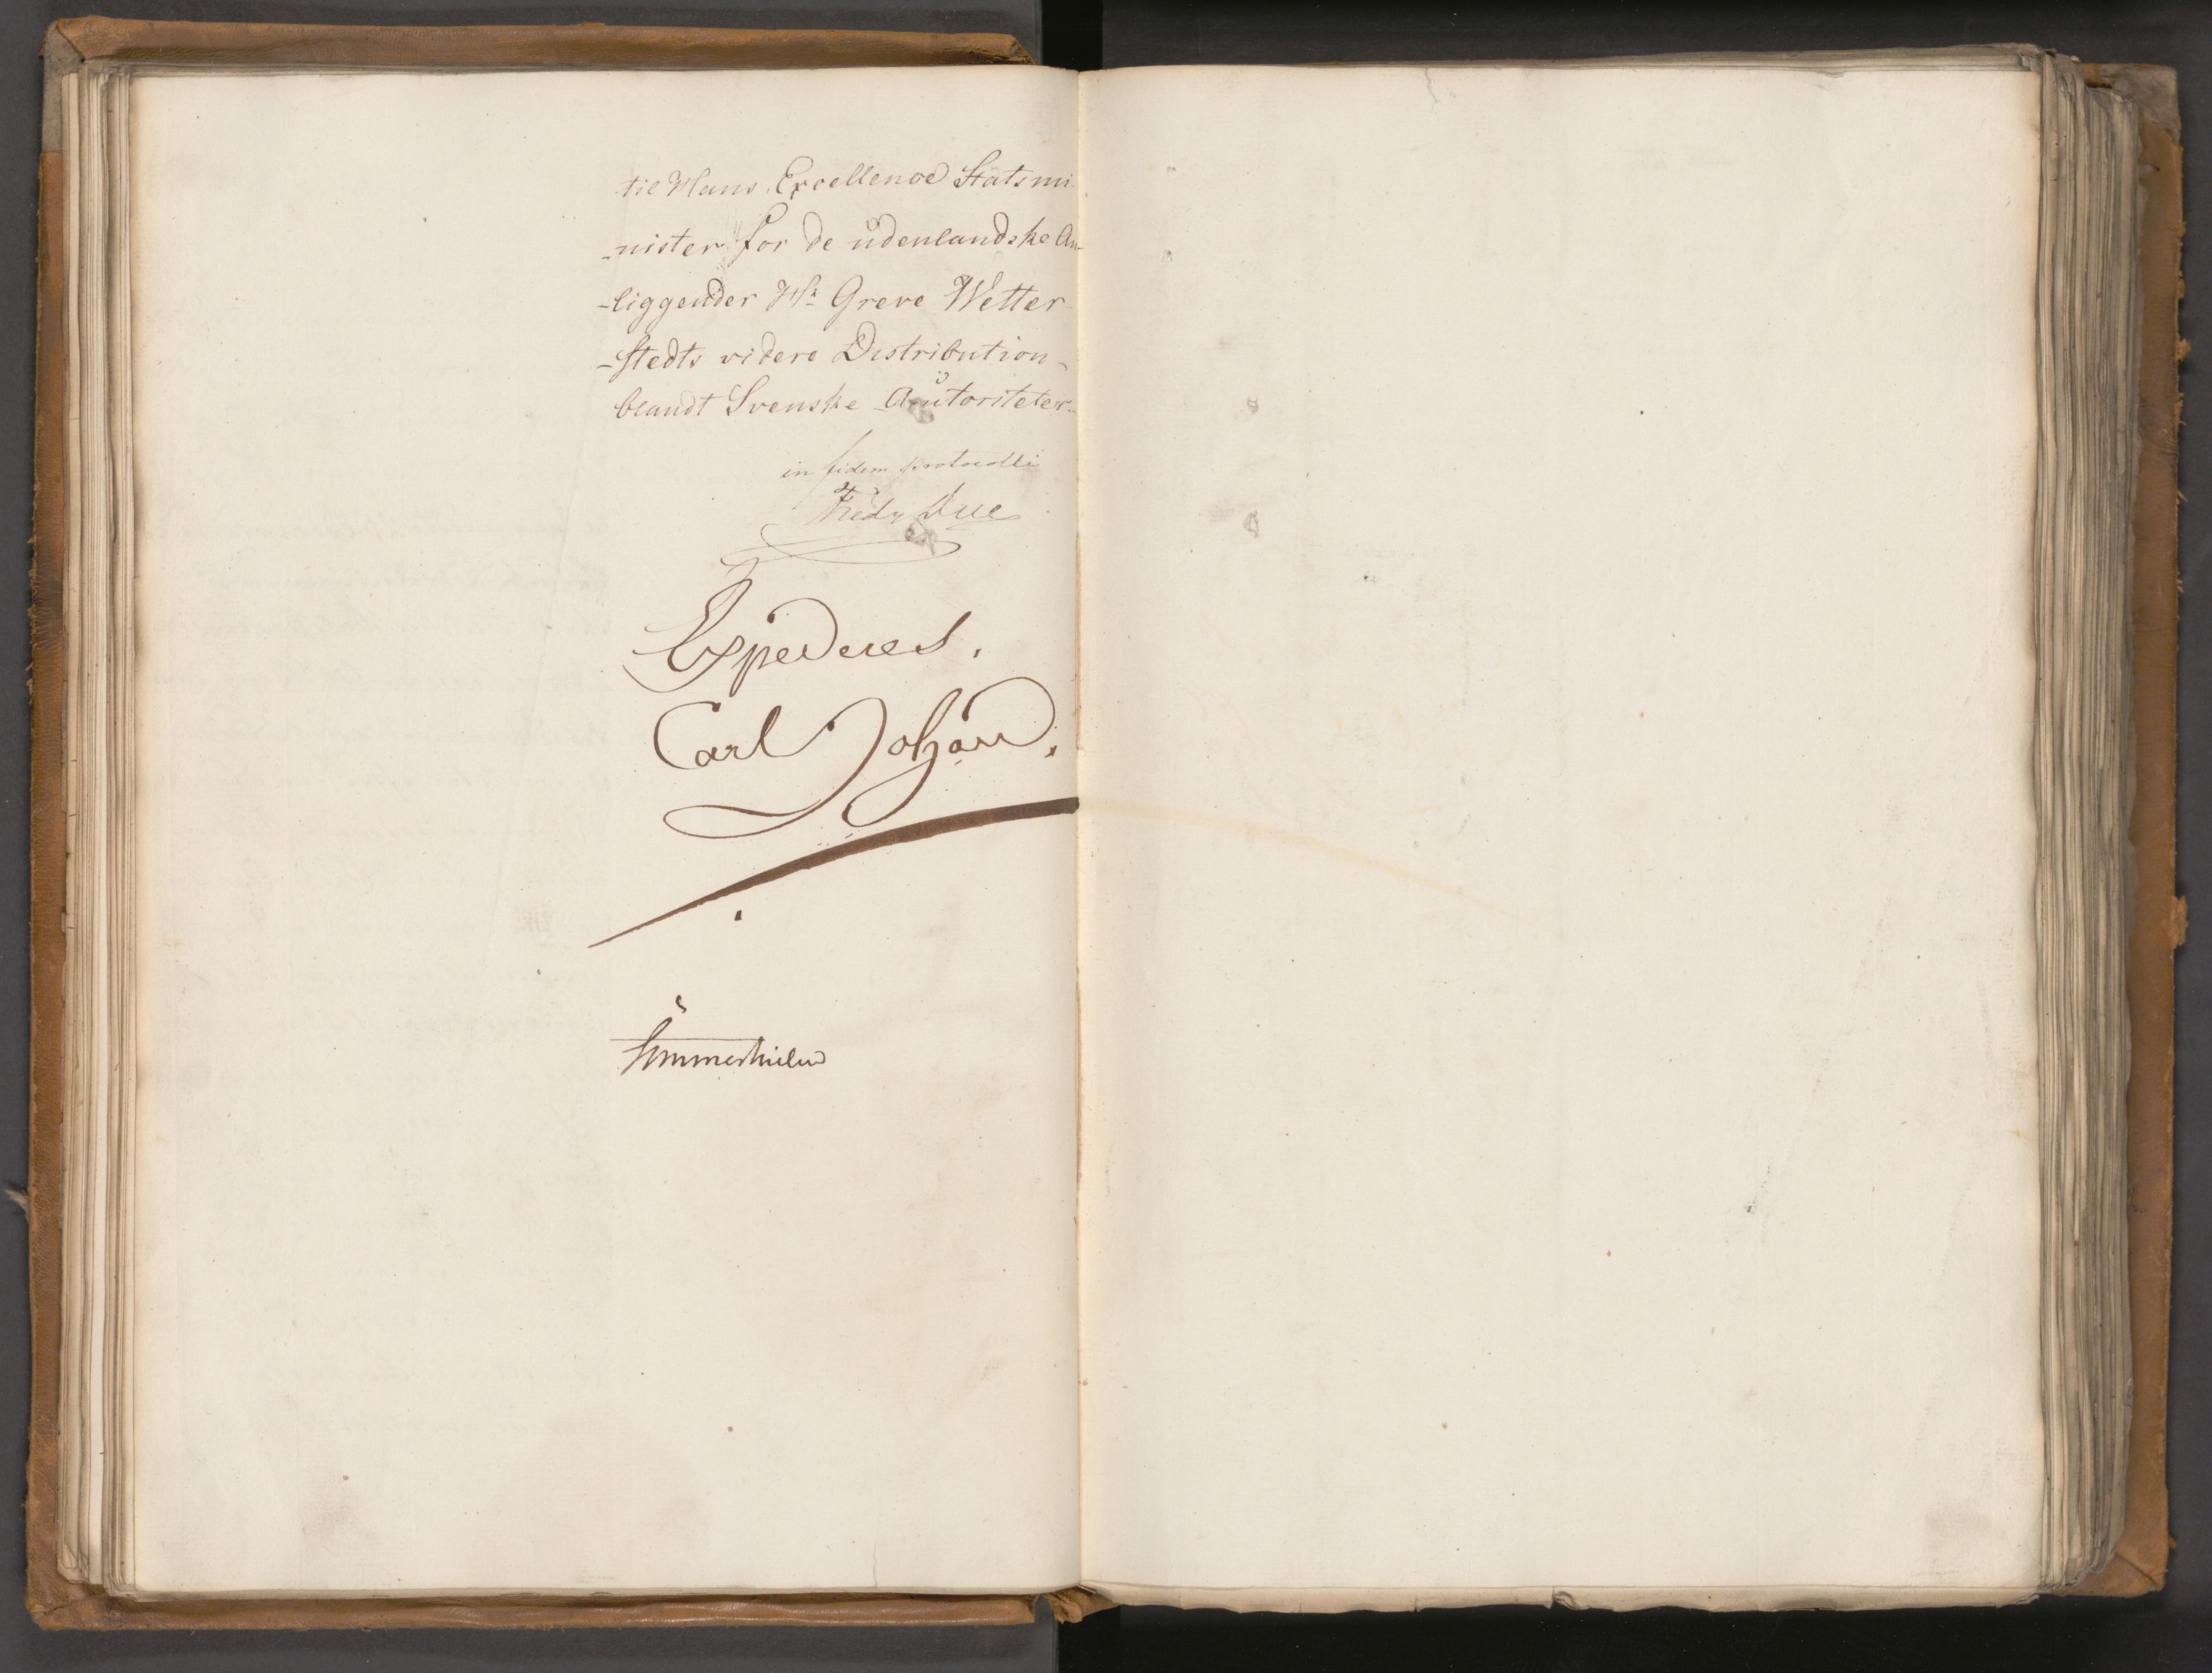 til Hans Excellence Statsmi
-nister for de udenlandske An-
-liggender Hr Greve Wetter
-stedts videre Distribution
blandt Svenske Autoriteter.
in fidem protocolli
Fredr Due
Expederes.
Carl Johan.
Sommerhielm